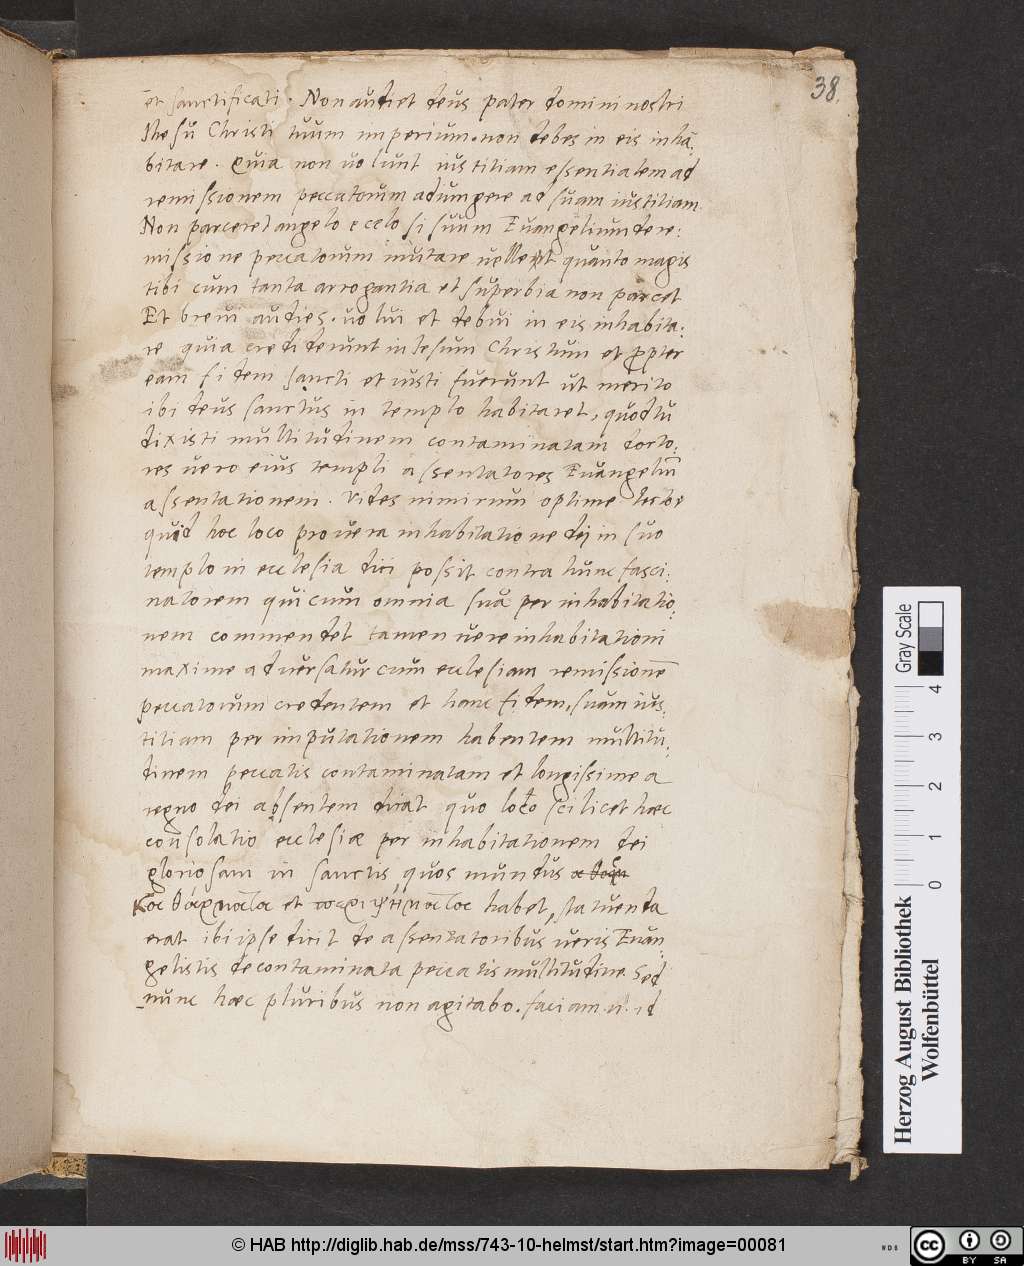 38.
et sanctificati. Non audiet deus pater domini nostri
Ihesu Christi tuum imperium. non debes in eis inhā,
bitare. Quia non uolunt iustitiam essentialem ad
remissionem peccatorum adiungere ad suam iustitiam
Non parceret angelo e celo si suum Euangelium de re:
missione peccatorum mutare uellet quanto magis
tibi cum tanta arrogantia et superbia non parcet
Et breui audies. uolui et debui in eis inhabita:
re quia crediderunt in Iesum Christum et ꝓpter
eam fidem sancti et iusti fuerunt ut merito
ibi deus sanctus in templo habitaret, quod tu
dixisti multitudinem contaminatam docto:
res uero eius templi assentatores Euangeliū
assentationem. Vides nimirum optime
quid hoc loco pro uera inhabitatione dei in suo
templo in ecclesia dici possit contra hunc fasci:
natorem qui cum omnia sua per inhabitatio:
nem commendet tamen uere inhabitationi
maxime aduersatur cum ecclesiam remissionē
peccatorum credentem et hanc fidem, suam ius:
titiam per imputationem habentem multitu:
dinem peccatis contaminatam et longissime a
regno dei absentem dicat quo loco scilicet hæc
consolatio ecclesiæ per inhabitationem dei
gloriosam in sanctis quos mundus
καθάρματα et περιψήματα habet, statuenda
erat ibi ipse dicit de assentatoribus ueris Euan:
gelistis de contaminata peccatis multitudine. Sed
nunc hæc pluribus non agitabo. faciam id
Herzog August Bibliothek
Wolfenbüttel
Gray Scale
0 1 2 3 4
© HAB http://diglib.hab.de/mss/743-10-helmst/start.htm?image=00081
cc BY SA